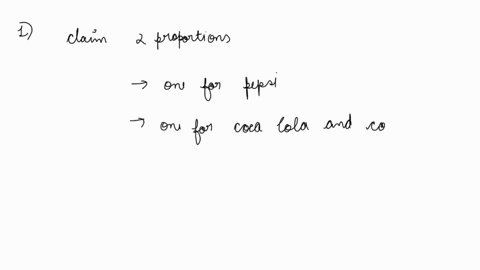 1)
claim 2 proportions
→ one for pepsi
→ one for coca lola and co